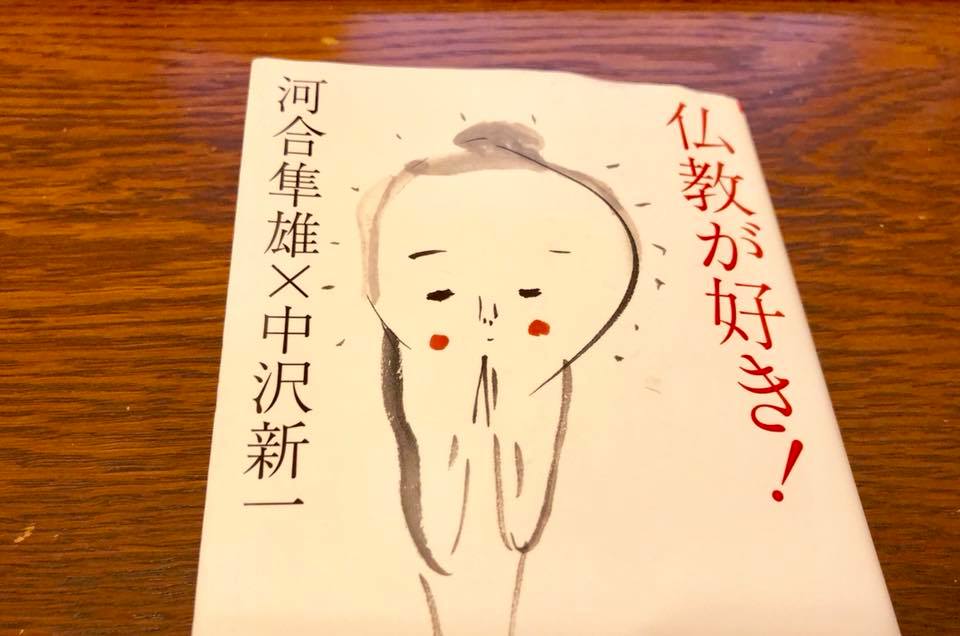 仏教が好き!
河合隼雄×中沢新一